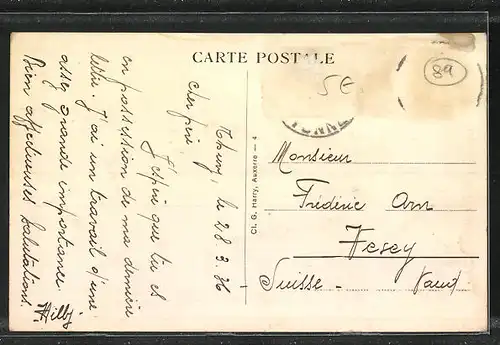 CARTE POSTALE
89
5 €
YONNE
Thury, le 28.3.36
Cher père,
J'espère que tu es
en possession de ma dernière
lettre. J'ai un travail d'une
assez grande importance.
Bien affectueuses salutations.
Willy
Cl. G. Harry, Auxerre — 4
Monsieur
Frédéric Am
Vesey
Suisse. Vaud